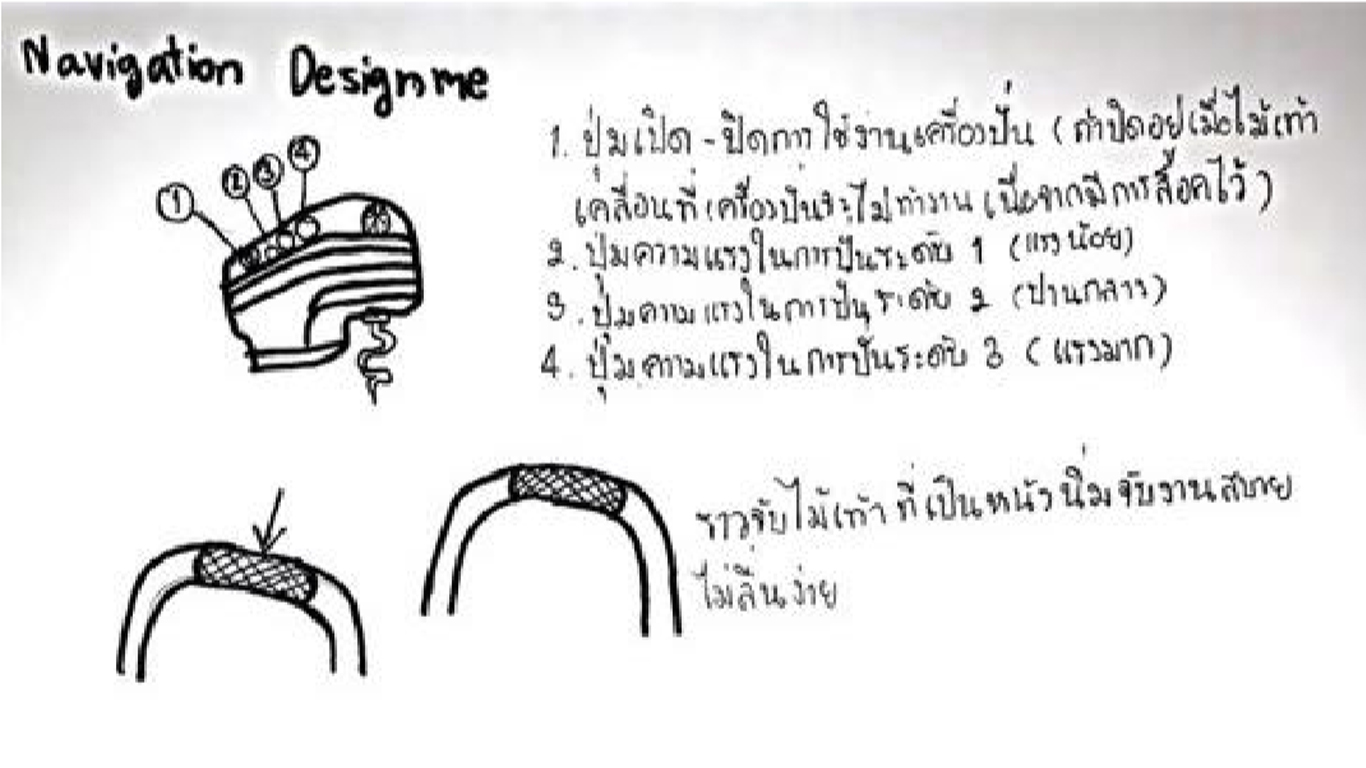 Navigation Designme
1 2 3 4
1. ปุ่มเปิด - ปิดการใช้งานเครื่องปั่น (ถ้าปิดอยู่เมื่อไม้เท้า
เคลื่อนที่เครื่องปั่นจะไม่ทำงาน เนื่องจากมีการล็อคไว้)
2. ปุ่มความแรงในการปั่นระดับ 1 (แรงน้อย)
3. ปุ่มความแรงในการปั่นระดับ 2 (ปานกลาง)
4. ปุ่มความแรงในการปั่นระดับ 3 (แรงมาก)
ราวจับไม้เท้าที่เป็นหนังนิ่มจับงานสบาย
ไม่ลื่นง่าย